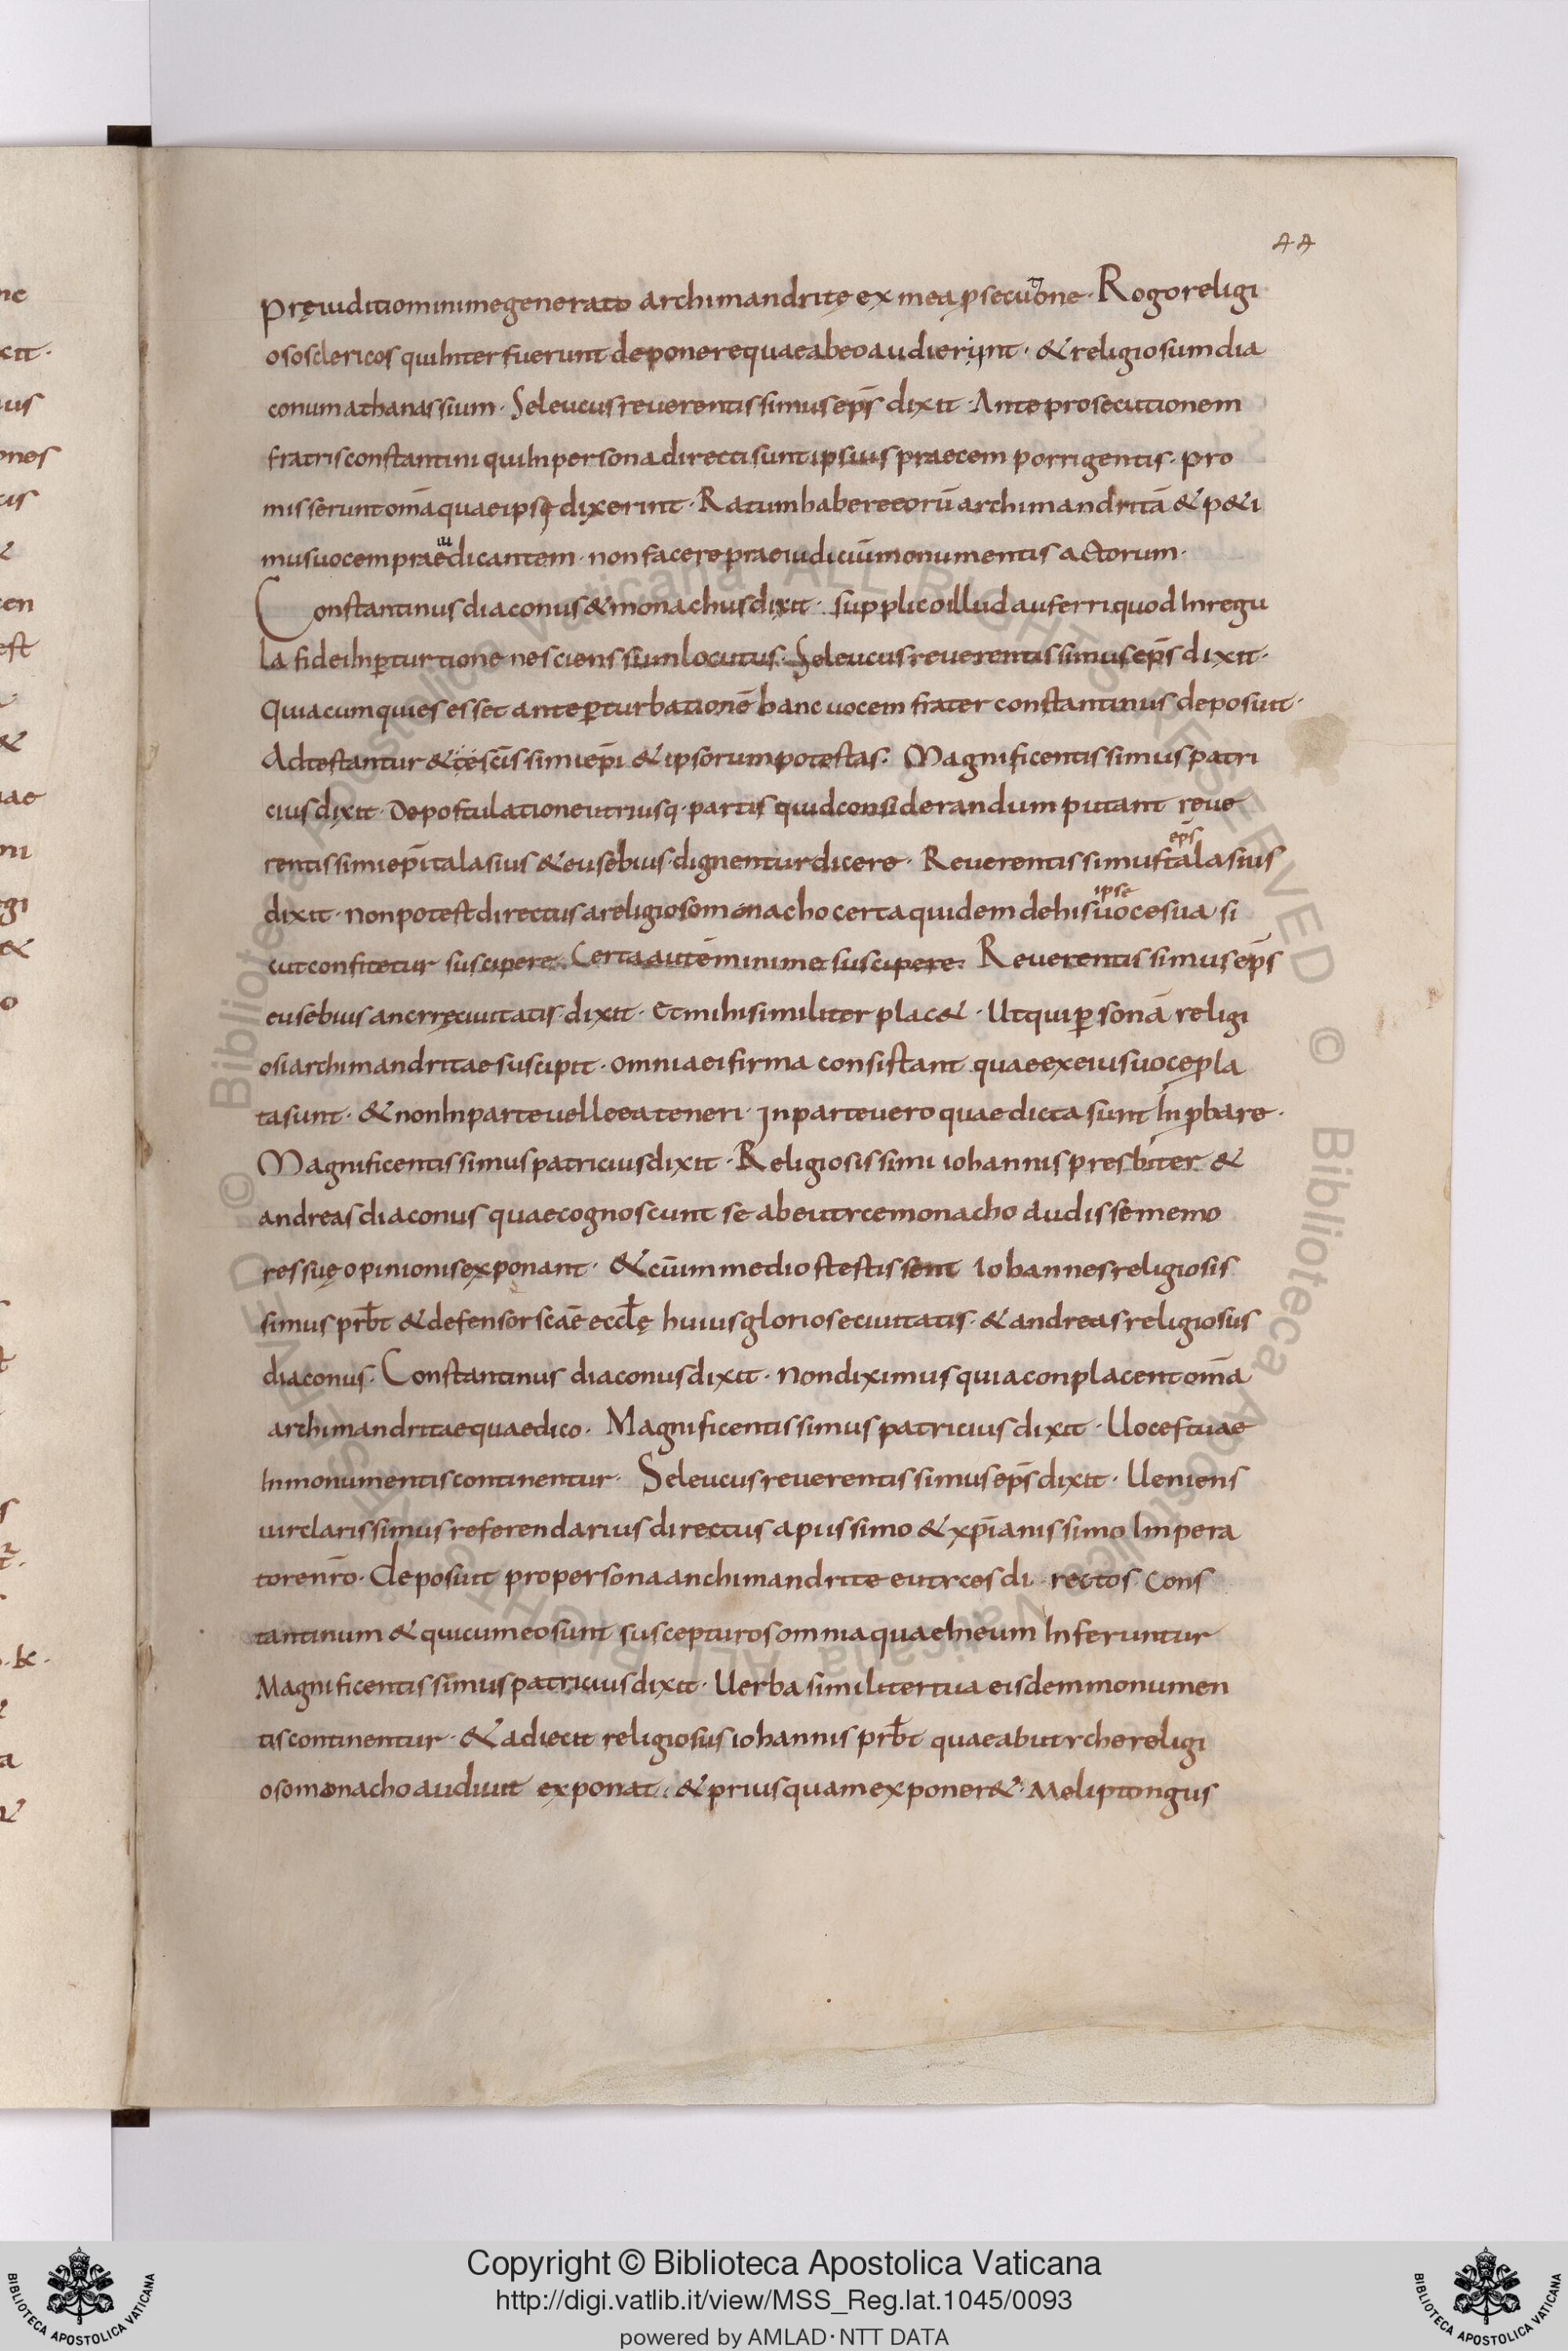 44
Pręiuditio minime generato archimandritę ex mea ꝓsecutione · Rogo religi
osos clericos qui Interfuerunt deponere quae ab eo audierunt · & religiosum dia
conum athanassium · Seleucus reuerentissimus ep̄s dixit · Ante prosecutionem
fratris constantini qui In persona directi sunt ipsius praecem porrigentis · pro
misserunt om̄a quae ipsę dixerint · Ratum habere eorū archimandritā & p&i
mus uocem praedicantem · non facere praeiudiciūm monumentis actorum ·
Constantinus diaconus & monachus dixit · supplico illud auferri quod In regu
la fidei In ꝑturtione nesciens sum locutus · Seleucus reuerentissimus ep̄s dixit ·
Quia cum quies esset ante ꝑturbationē hanc uocem frater constantinus deposuit ·
Adtestantur & sc̄issimi ep̄i & ipsorum potestas · Magnificentissimus patri
cius dixit · De postulatione utriusq · partis quid considerandum putant reue
rentissimi ep̄i talasius & eusebius · dignentur dicere · Reuerentissimus talasius
ep̄s
dixit · non potest directus a religioso monacho certa quidem de his uoce sua si
ipse
cut confitetur suscipere · Certa autē minime suscipere · Reuerentissimus ep̄s
eusebius ancrręciuitatis dixit · et mihi similiter plac& · Ut qui ꝑsonā religi
osi archimandritae suscipit · omnia ei firma consistant quae ex eius uoce pla
ta sunt · & non In parte uelle ea teneri · In parte uero quae dicta sunt In ꝓbare ·
Magnificentissimus patricius dixit · Religiosissimi iohannis presbiter &
andreas diaconus quae cognoscunt se ab eutrce monacho audisse memo
res suę opinionis exponant · & cūm medio stestissent Iohannes religiosis
simus prƀt & defensor scāe eccłę huius gloriose ciuitatis · & andreas religiosus
diaconus · Constantinus diaconus dixit · Non diximus quia conplacent om̄a
archimandritae quae dico · Magnificentissimus patricius dixit · Uoces tuae
In monumentis continentur · Seleucus reuerentissimus ep̄s dixit · Ueniens
uir clarissimus referendarius directus a piissimo & xp̄ianissimo Impera
tore nr̄o · deposuit pro persona anchimandrite eutrces di rectos Cons
tantinum & qui cum eo sunt suscepturos omnia quae In eum Inferuntur
Magnificentissimus patricius dixit · Uerba similiter tua eisdem monumen
tis continentur · & adiecit religiosus iohannis prƀt quae ab utrche religi
oso monacho audiuit exponat · & prius quam exponer& · Meliptongus
Copyright © Biblioteca Apostolica Vaticana
http://digi.vatlib.it/view/MSS_Reg.lat.1045/0093
powered by AMLAD·NTT DATA